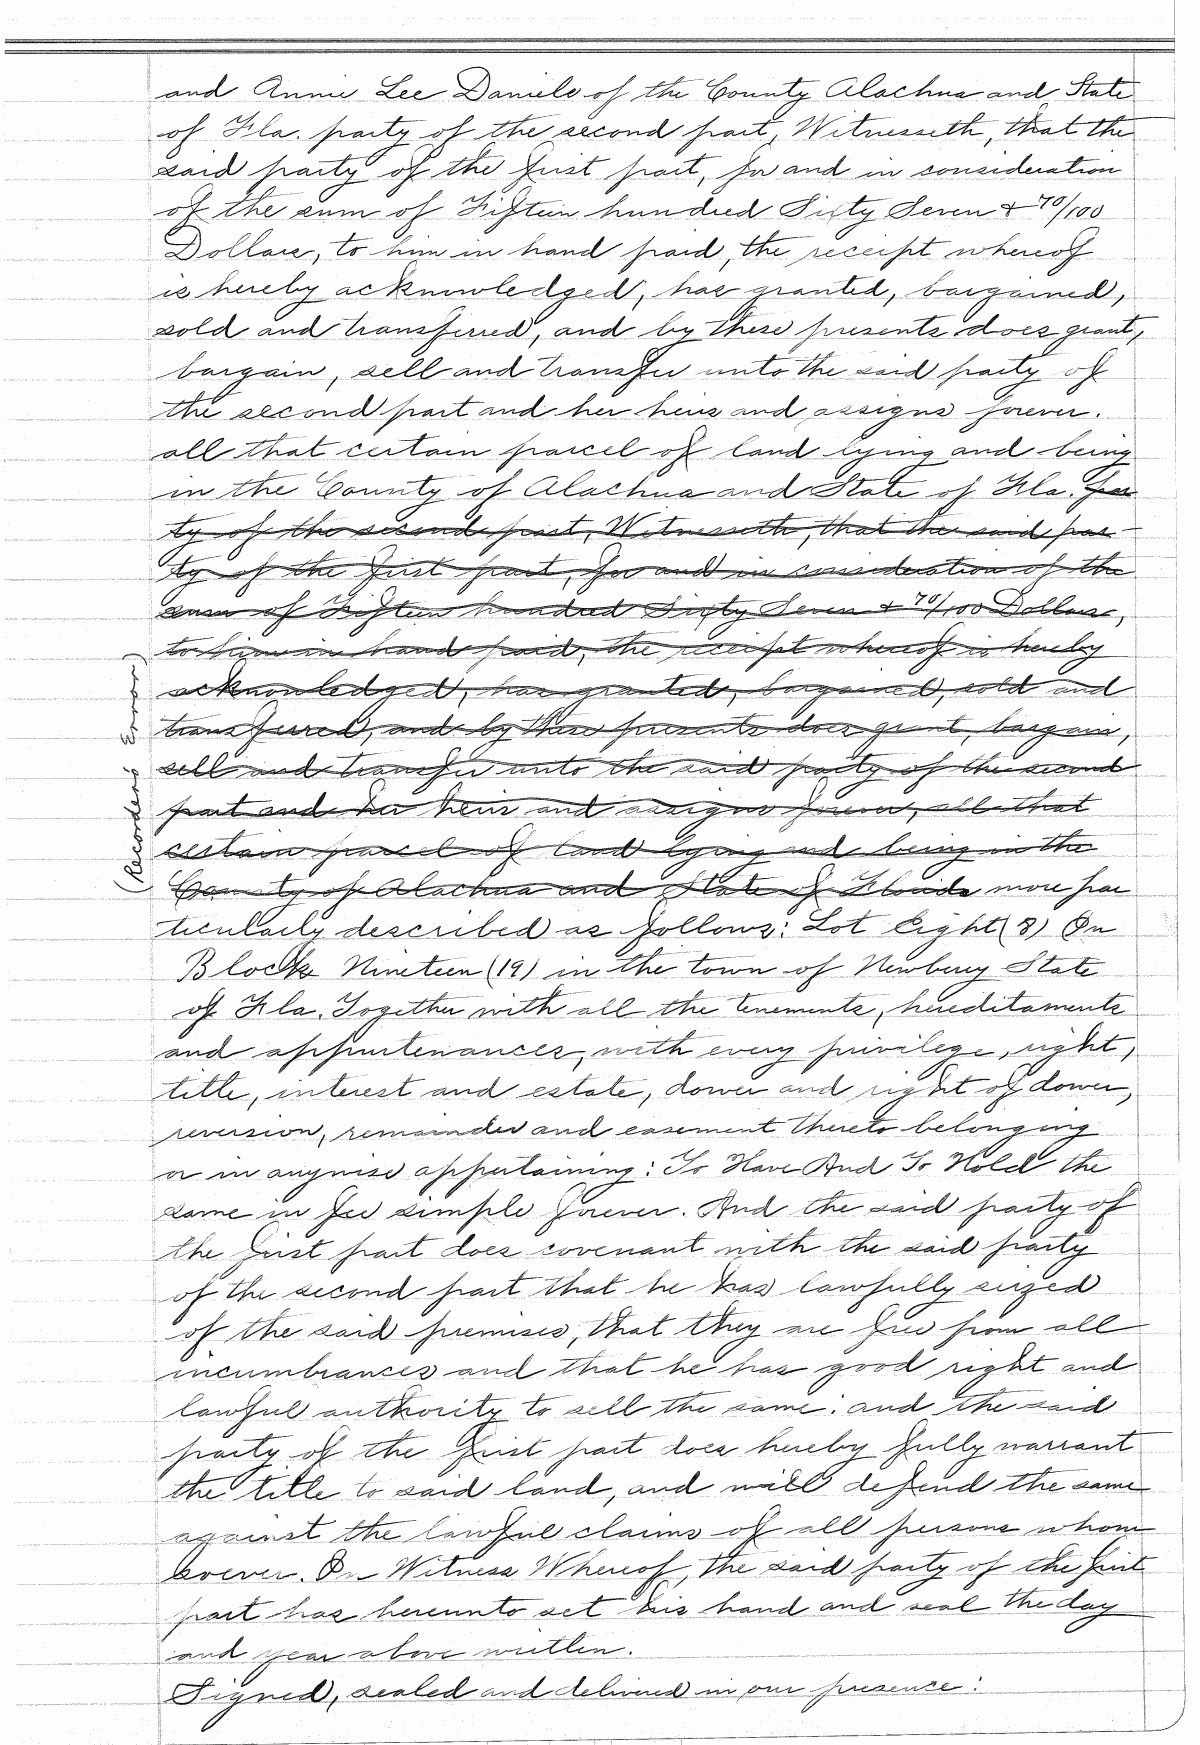 and Annie Lee Daniels of the County Alachua and State
of Fla. party of the second part, Witnesseth, that the
said party of the first part, for and in consideration
of the sum of Fifteen hundred Sixty Seven & 70/100
Dollars, to him in hand paid, the receipt whereof
is hereby acknowledged, has granted, bargained,
sold and transferred, and by these presents does grant,
bargain, sell and transfer unto the said party of
the second part and her heirs and assigns forever.
all that certain parcel of land lying and being
in the County of Alachua and State of Fla. par
ty of the second part, Witnesseth, that the said par-
ty of the first part, for and in consideration of the
sum of Fifteen hundred Sixty Seven & 70/100 Dollars,
to him in hand paid, the receipt whereof is hereby
acknowledged, has granted, bargained, sold and
transferred, and by these presents does grant, bargain,
sell and transfer unto the said party of the second
part and her heirs and assigns forever, all that
certain parcel of land lying and being in the
County of Alachua and State of Florida more par
(Recorders Error)
ticularly described as follows: Lot Eight (8) In
Block Nineteen (19) in the town of Newberry State
of Fla. Together with all the tenements, hereditaments
and appurtenances, with every privilege, right,
title, interest and estate, dower and right of dower,
reversion, remainder and easement thereto belonging
or in anywise appertaining: To Have And To Hold the
same in fee simple forever. And the said party of
the first part does covenant with the said party
of the second part that he has lawfully seized
of the said premises, that they are free from all
incumbrances and that he has good right and
lawful authority to sell the same; and the said
party of the first part does hereby fully warrant
the title to said land, and will defend the same
against the lawful claims of all persons whom
soever. In Witness Whereof, the said party of the first
part has hereunto set his hand and seal the day
and year above written.
Signed, sealed and delivered in our presence: